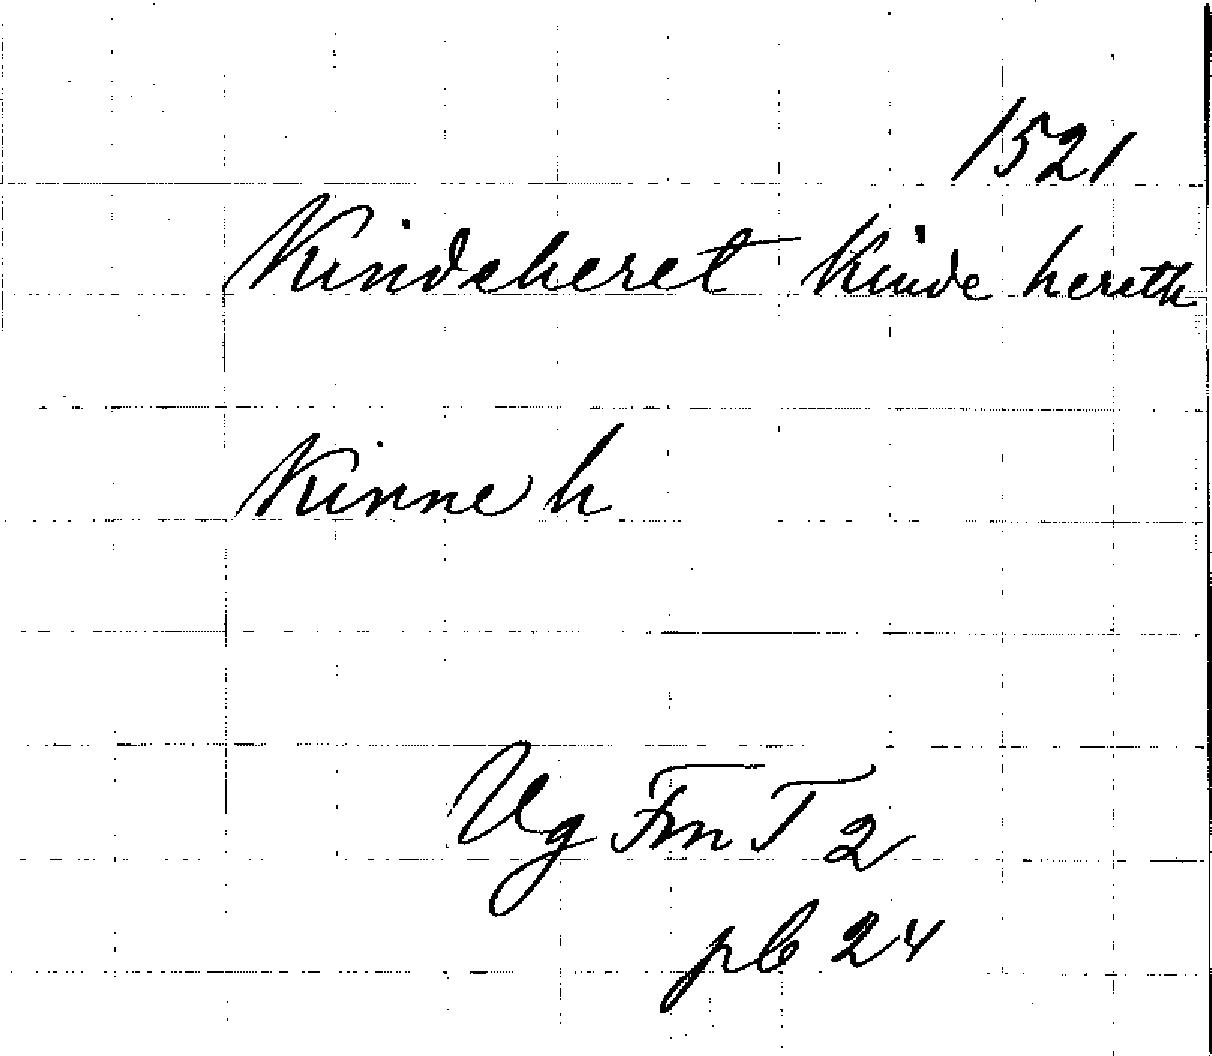 1521
Kindeheret Kinde hereth
Kinne h
Vg Fm T 2
pb 24